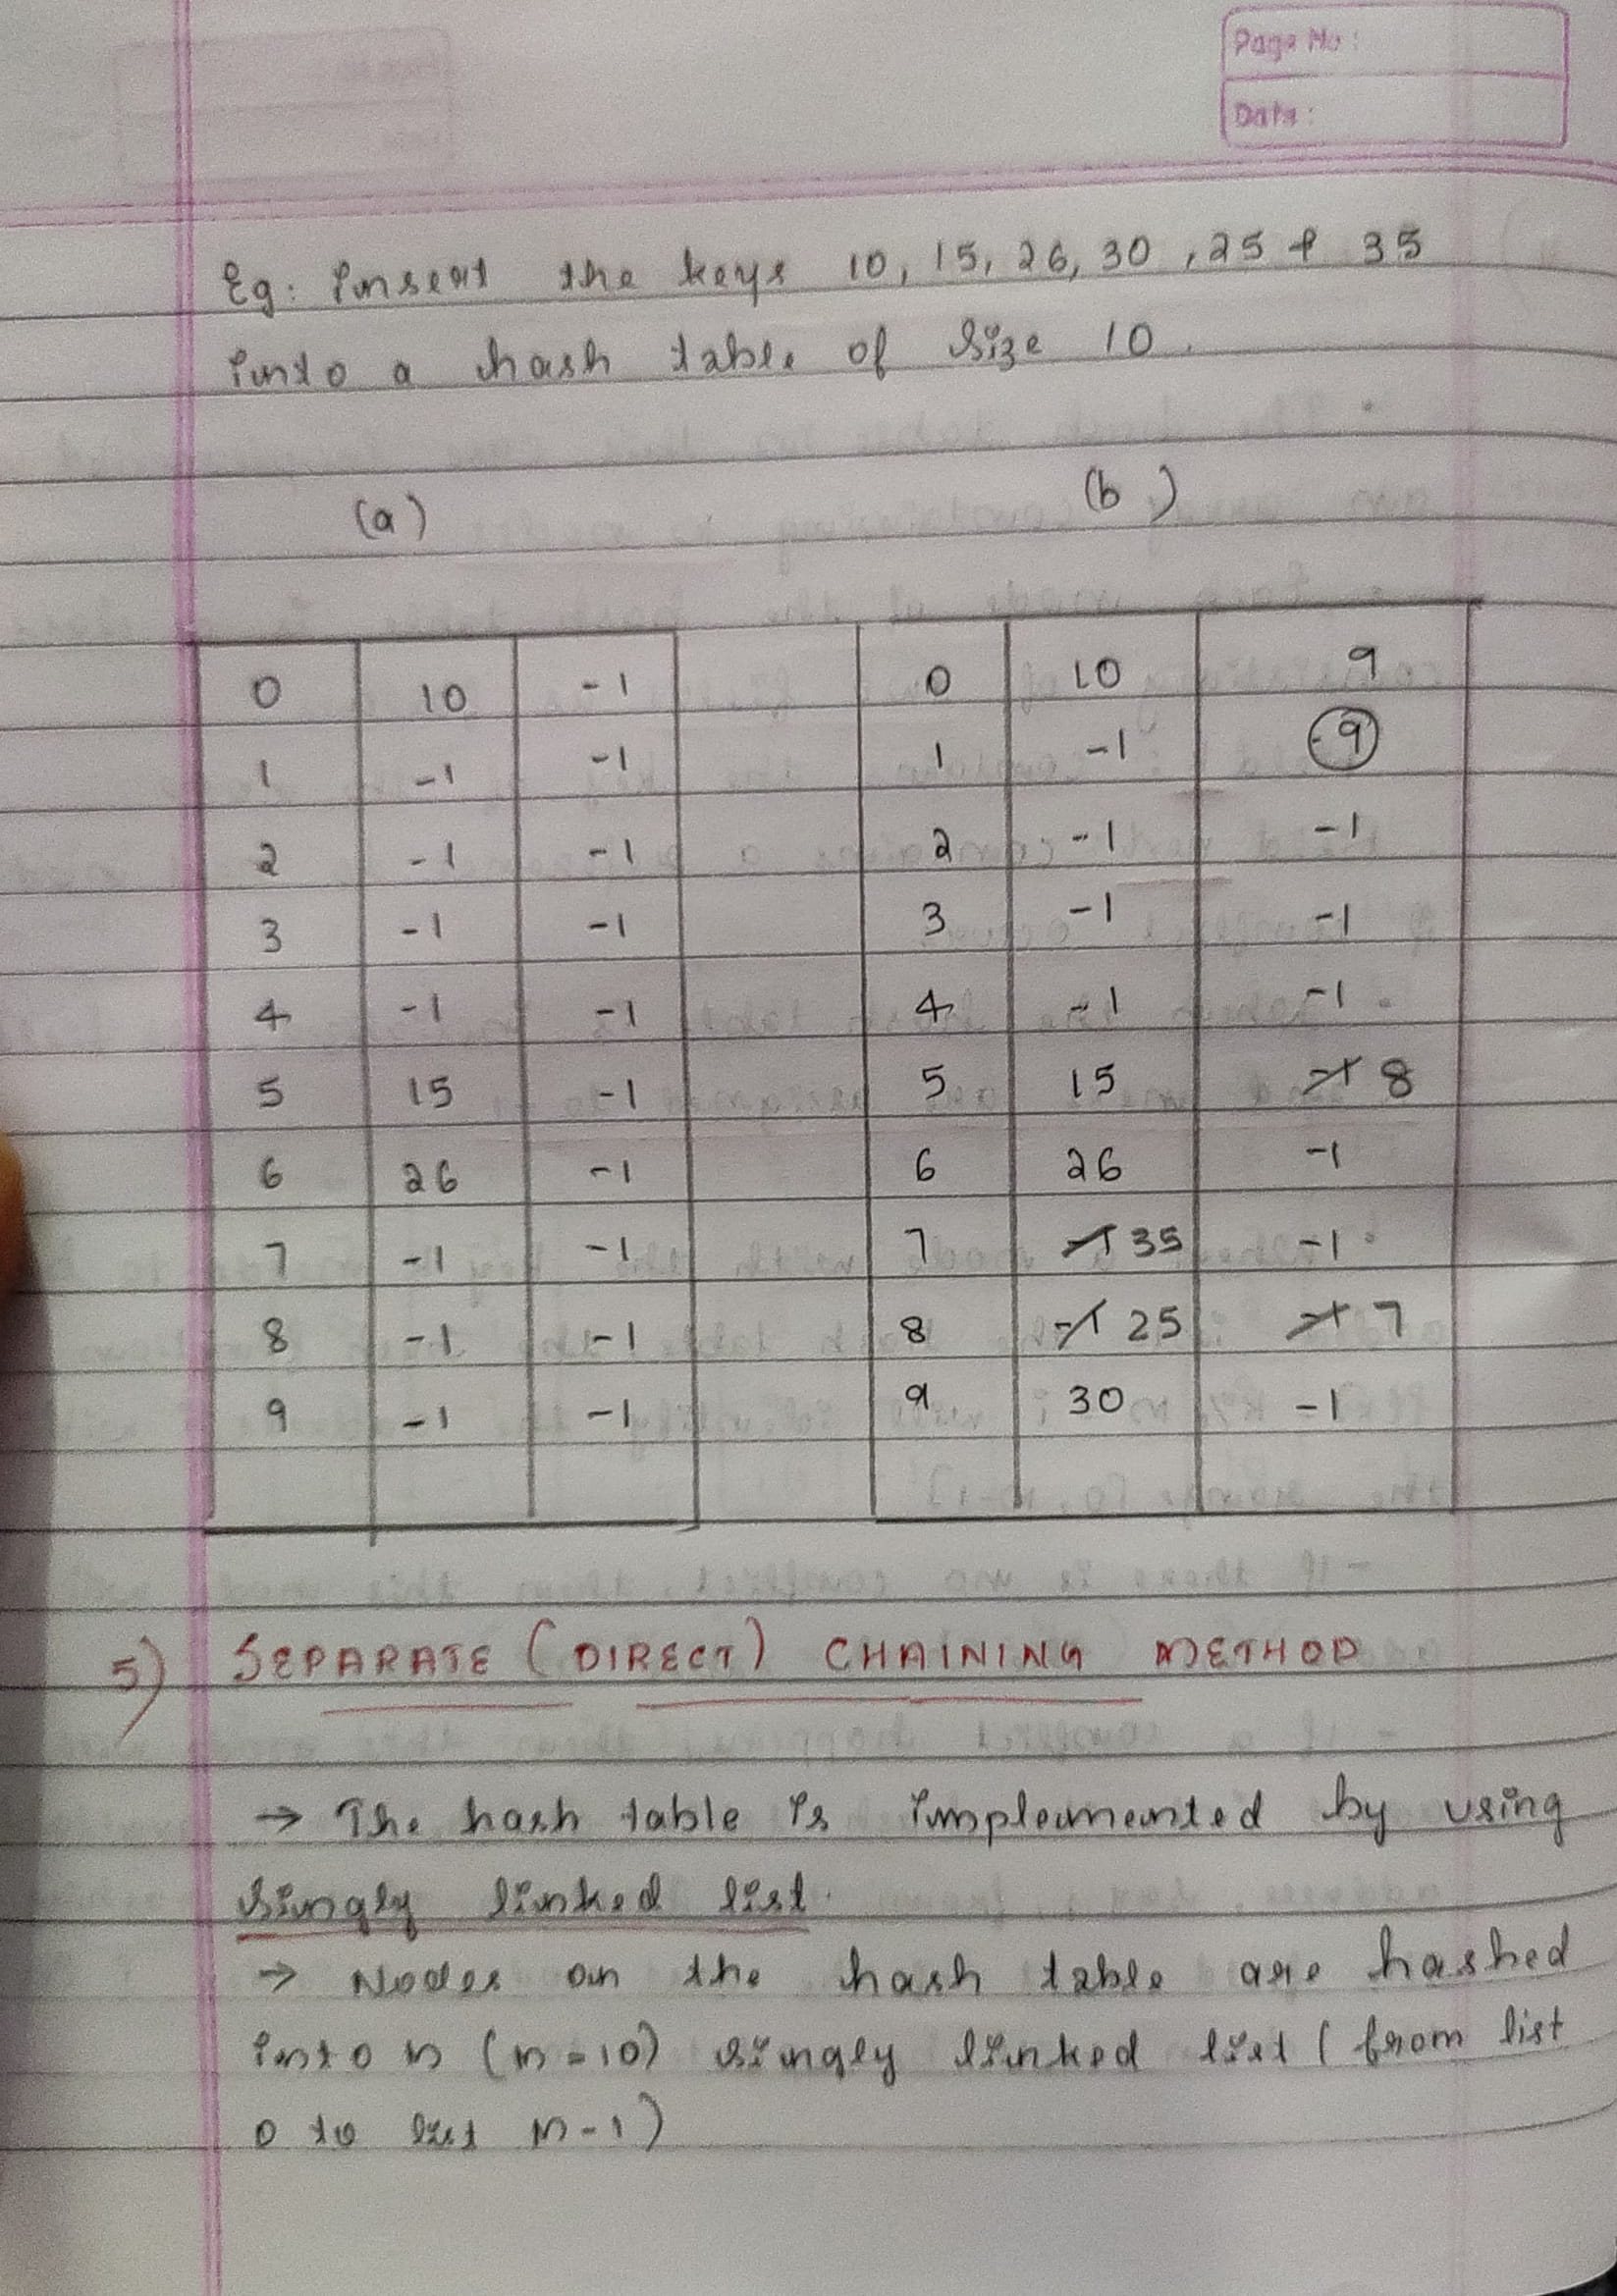 Page No:
Date:
Eg: insert the keys 10, 15, 26, 30, 25 & 35
into a hash table of size 10.
(a) (b)
0 10 -1 0 10 9
1 -1 -1 1 -1 -9
2 -1 -1 2 -1 -1
3 -1 -1 3 -1 -1
4 -1 -1 4 -1 -1
5 15 -1 5 15 -1 8
6 26 -1 6 26 -1
7 -1 -1 7 -1 35 -1
8 -1 -1 8 -1 25 -1 7
9 -1 -1 9 30 -1
5) SEPARATE (DIRECT) CHAINING METHOD
→ The hash table is implemented by using
singly linked list.
→ Nodes on the hash table are hashed
into n (n=10) singly linked list (from list
0 to list n-1)